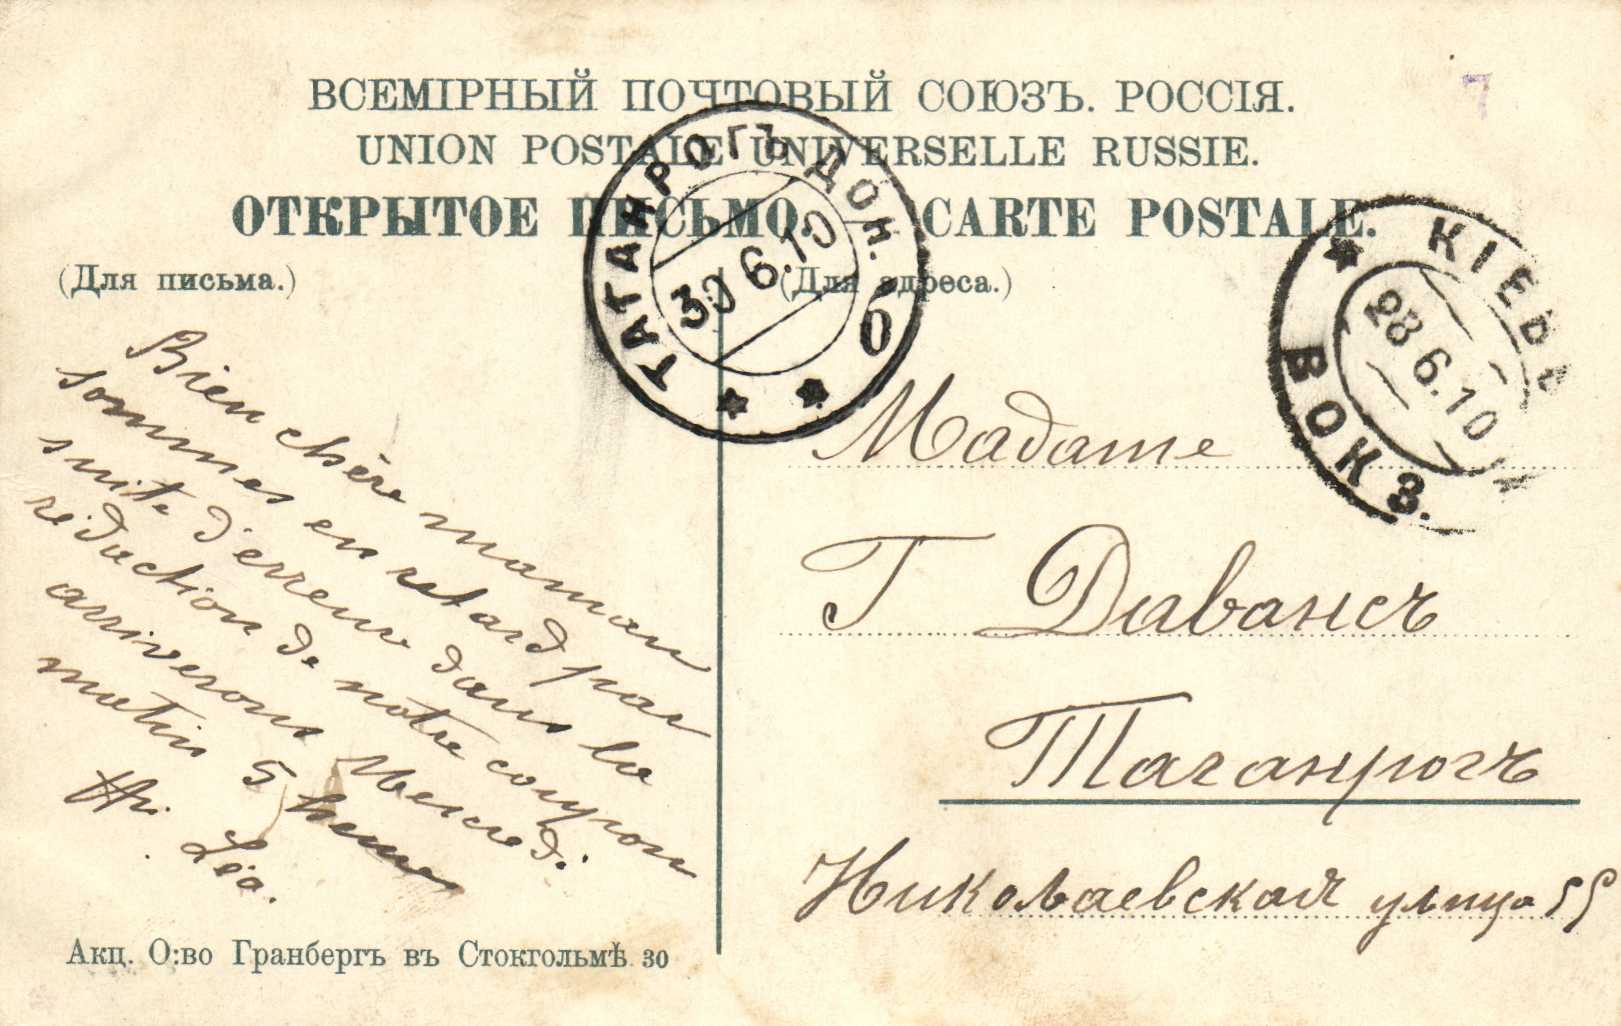 ВСЕМІРНЫЙ ПОЧТОВЫЙ СОЮЗЪ. РОССІЯ.
UNION POSTALE UNIVERSELLE RUSSIE.
ОТКРЫТОЕ ПИСЬМО. — CARTE POSTALE.
(Для письма.)
(Для адреса.)
ТАГАНРОГЪ ДОН. О
30 6.10
КІЕВЪ ВОКЗ.
28 6.10
7
Bien chère maman
sommes en retard par
suite d'erreur dans la
réduction de notre coupon
arriverons Mercredi
matin 5 heures
Léa.
Madame
Г Давансъ
Таганрогъ
Николаевская улица 55
Акц. О:во Гранбергъ въ Стокгольмѣ 30